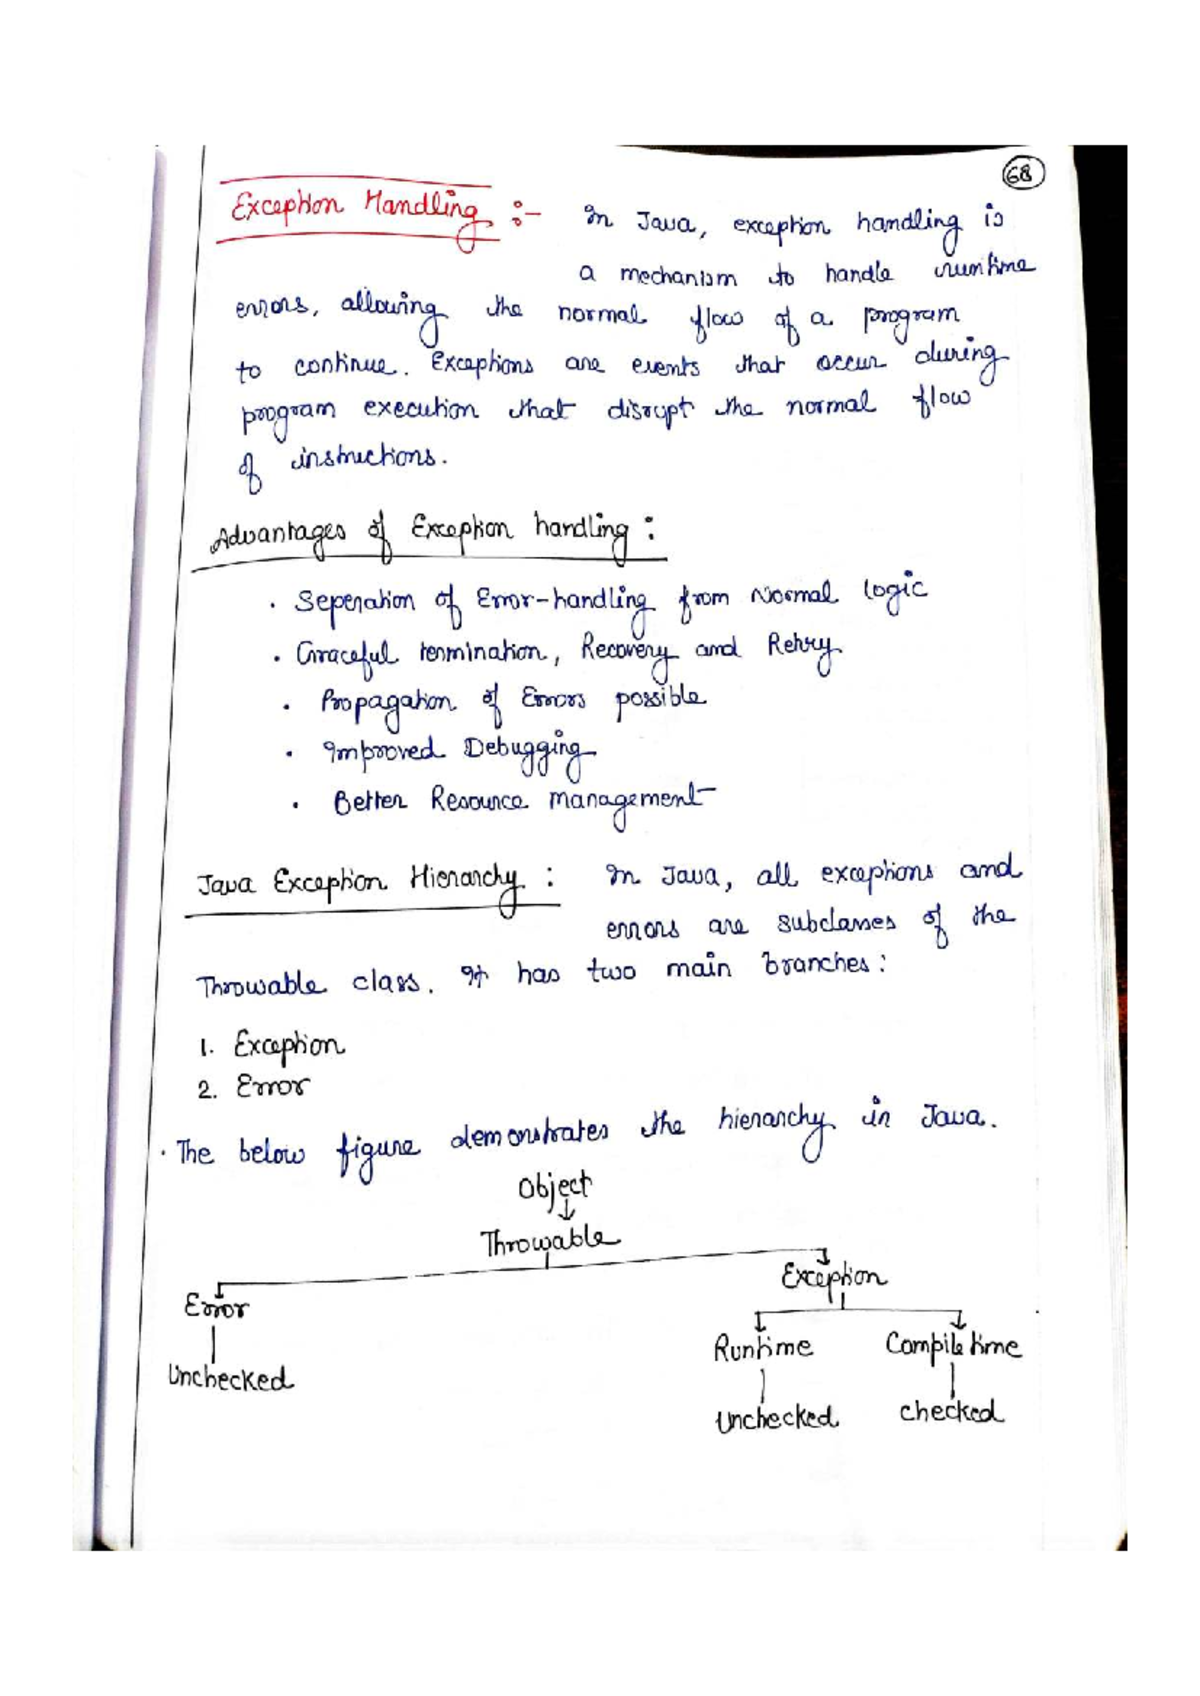 68
Exception Handling :- In Java, exception handling is
a mechanism to handle runtime
errors, allowing the normal flow of a program
to continue. Exceptions are events that occur during
program execution that disrupt the normal flow
of instructions.
Advantages of Exception handling :
· Seperation of Error-handling from Normal logic
· Graceful termination, Recovery and Retry
· Propagation of Errors possible
· Improved Debugging
· Better Resource management
Java Exception Hierarchy : In Java, all exceptions and
errors are subclasses of the
Throwable class. It has two main branches:
1. Exception
2. Error
· The below figure demonstrates the hierarchy in Java.
Object
Throwable
Exception
Error
Runtime Compile time
Unchecked
Unchecked checked